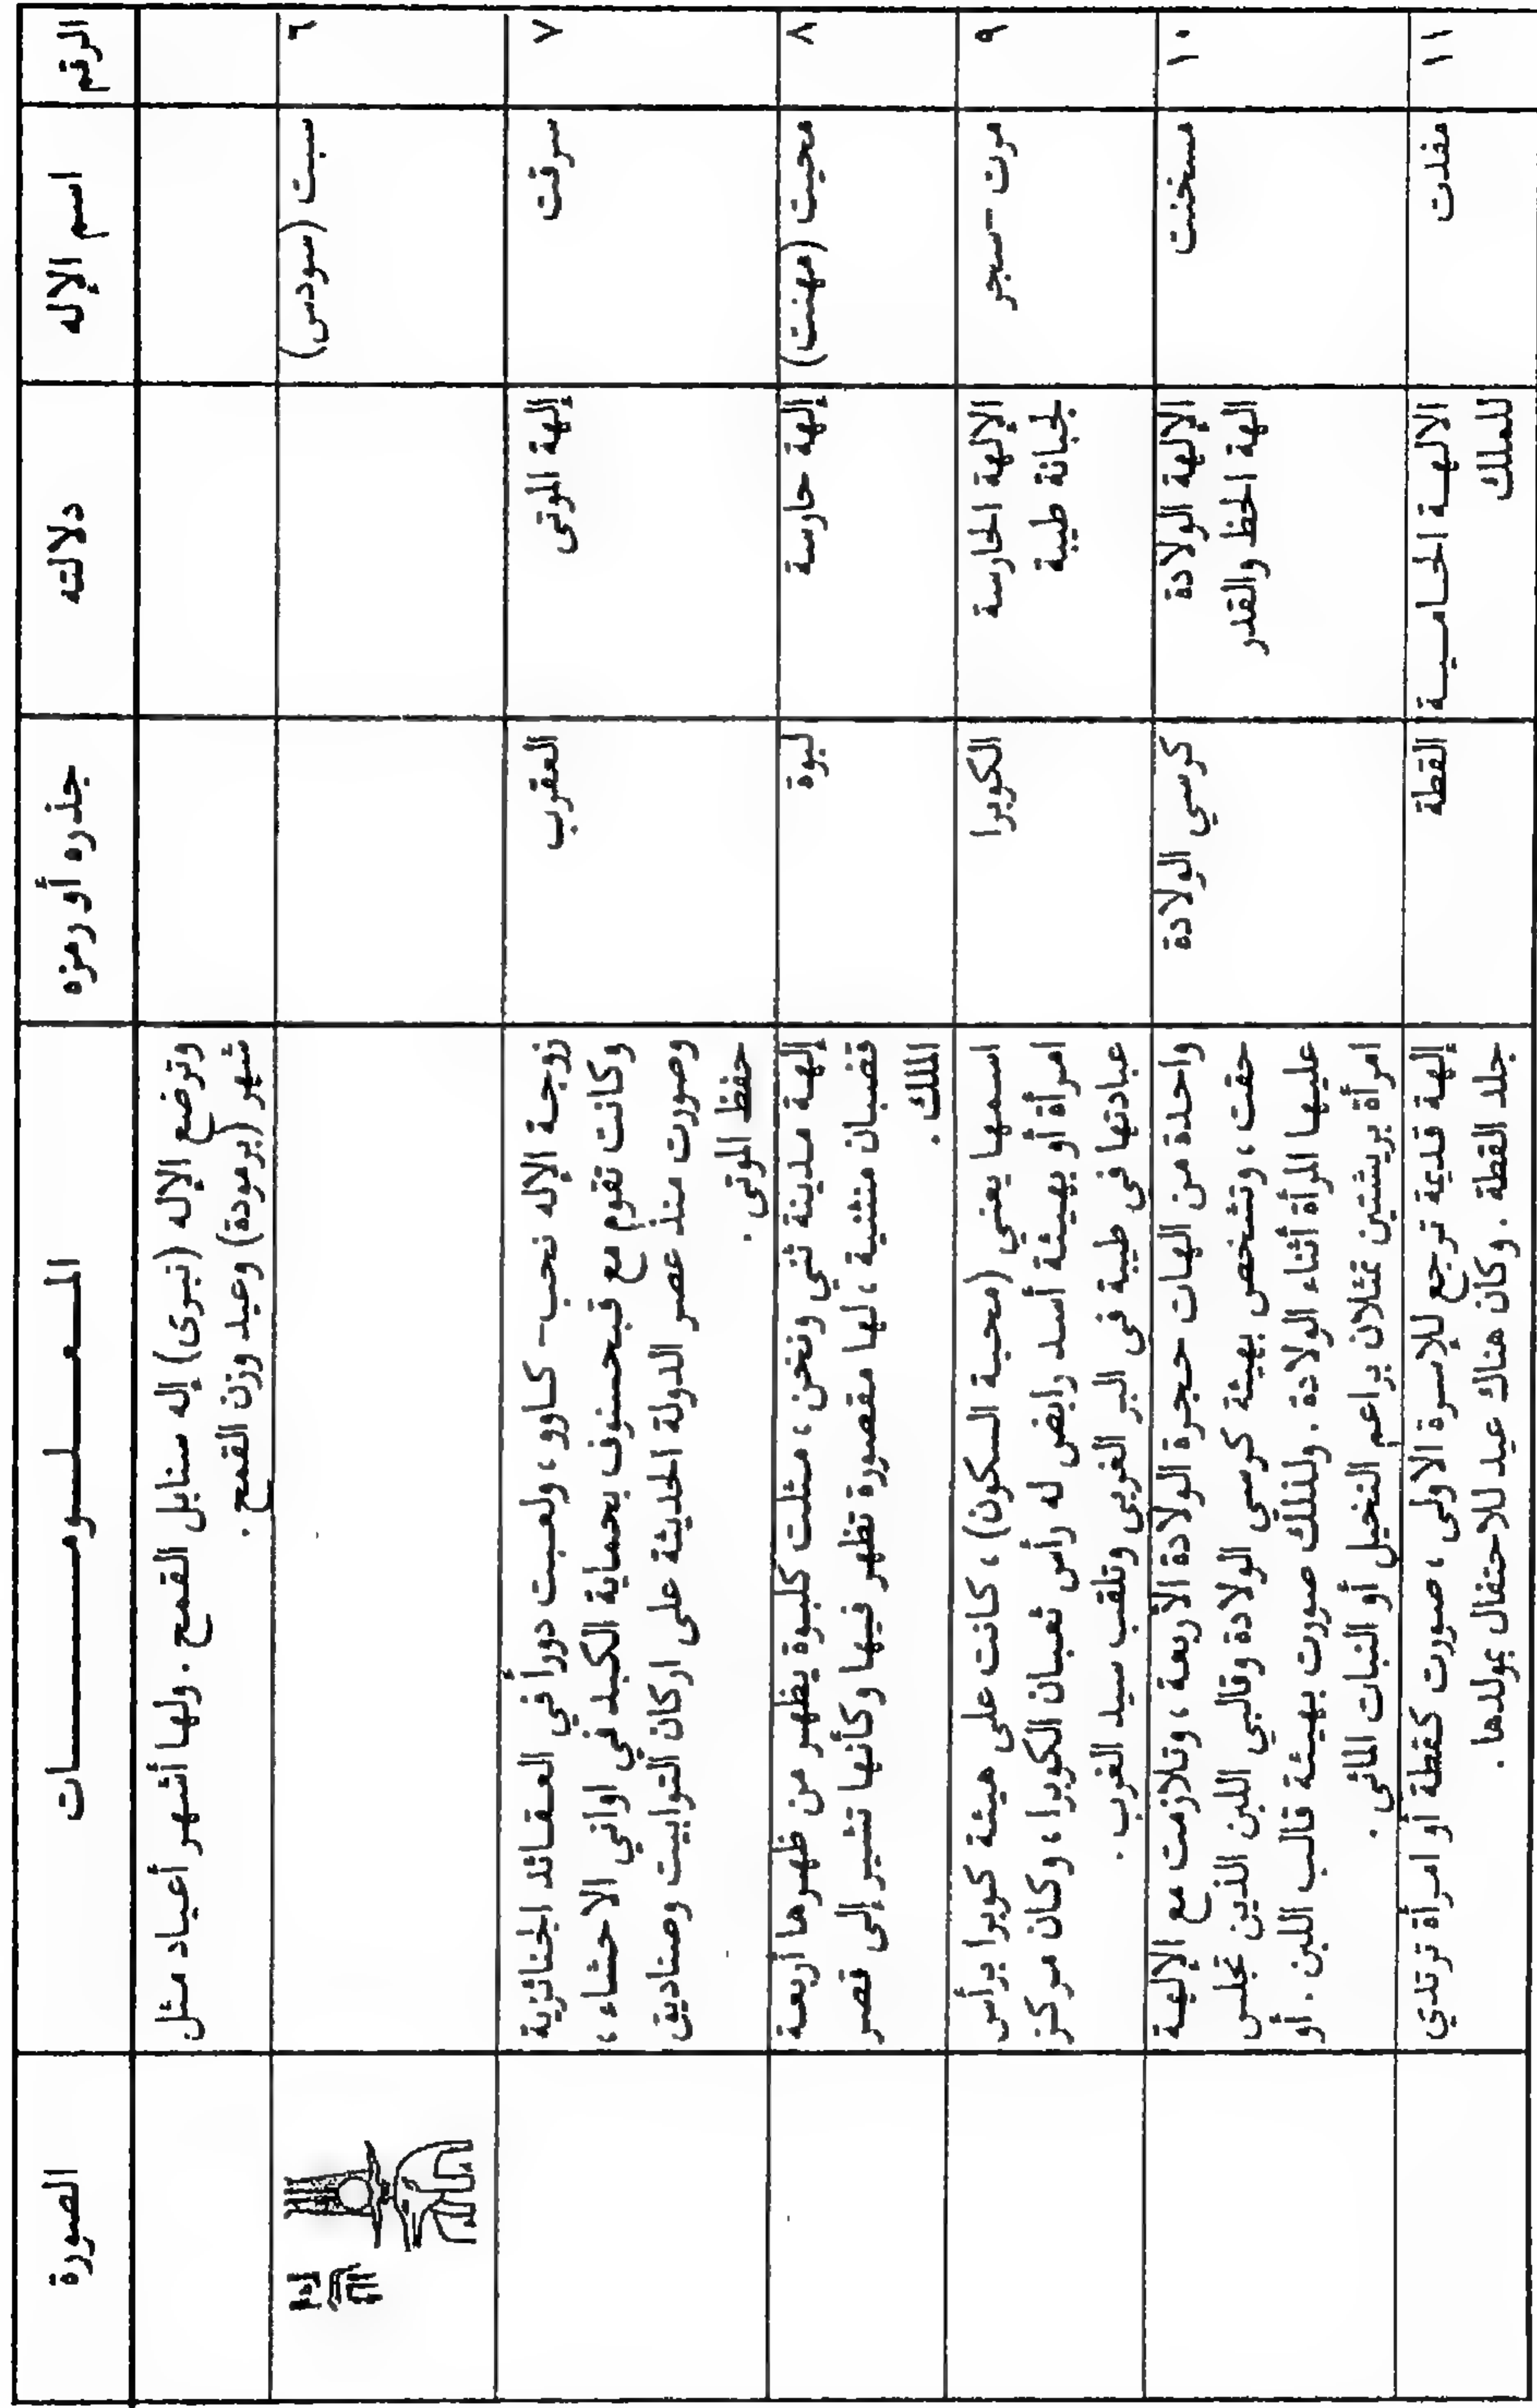 الرقم	اسم الإله	دلالته	جذره أو رمزه	المعلومات	الصورة
وترضع الإله (نبرى) إله سنابل القمح . ولها أشهر أعياد مثل
شهر (برمودة) وعيد وزن القمح .
٦	سبت (سودس)
٧	سرقت	إلهة الموتى	العقرب	زوجة الإله نحب- كاوو ، ولعبت دوراً في العقائد الجنائزية
وكانت تقوم مع قبحسنوف بحماية الكبد في اواني الاحشاء ،
وصورت منذ عصر الدولة الحديثة على اركان التوابيت وصناديق
حفظ الموتى .
٨	محيت (مهنت)	إلهة حارسة	لبوة	إلهة مدينة ثني ونخن ، مثلت كلبوة يظهر من ظهرها أربعة
قضبان منثنية ، لها مقصورة تظهر فيها وكأنها تشير إلى قصر
الملك .
٩	مرت -سجر	الإلهة الحارسة	الكوبرا	اسمها يعني (محبة السكون) ، كانت على هيئة كوبرا برأس
لجبانة طيبة	امرأة أو بهيئة أسد رابض له رأس ثعبان الكوبرا ، وكان مركز
عبادتها في طيبة في البر الغربي وتلقب سيد الغرب .
١٠	مسخنت	الإلهة الولادة	كرسي الولادة	واحدة من الهات حجرة الولادة الأربعة ، وتلازمت مع الإلهة
الهة الحظ والقدر	حقت ، وتشخص بهيئة كرسي الولادة وقالبي اللبن الذين تجلس
عليها المرأة أثناء الولادة . ولذلك صورت بهيئة قالب اللبن . أو
امرأة بريشتين تمثلان براعم النخيل أو النبات المائي .
١١	مفدت	الالهة الحامية	القطة	إلهة قديمة ترجع للإسرة الاولى ، صورت كقطة أو امرأة ترتدي
للملك	جلد القطة . وكان هناك عيد للاحتفال بمولدها .